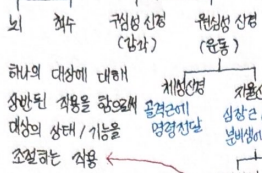 뇌 척수 구심성 신경 원심성 신경
(감각) (운동)
하나의 대상에 대해
상반된 작용을 함으로써
대상의 상태/기능을
조절하는 작용
체성신경
골격근에
명령전달
자율
심장근
분비샘에